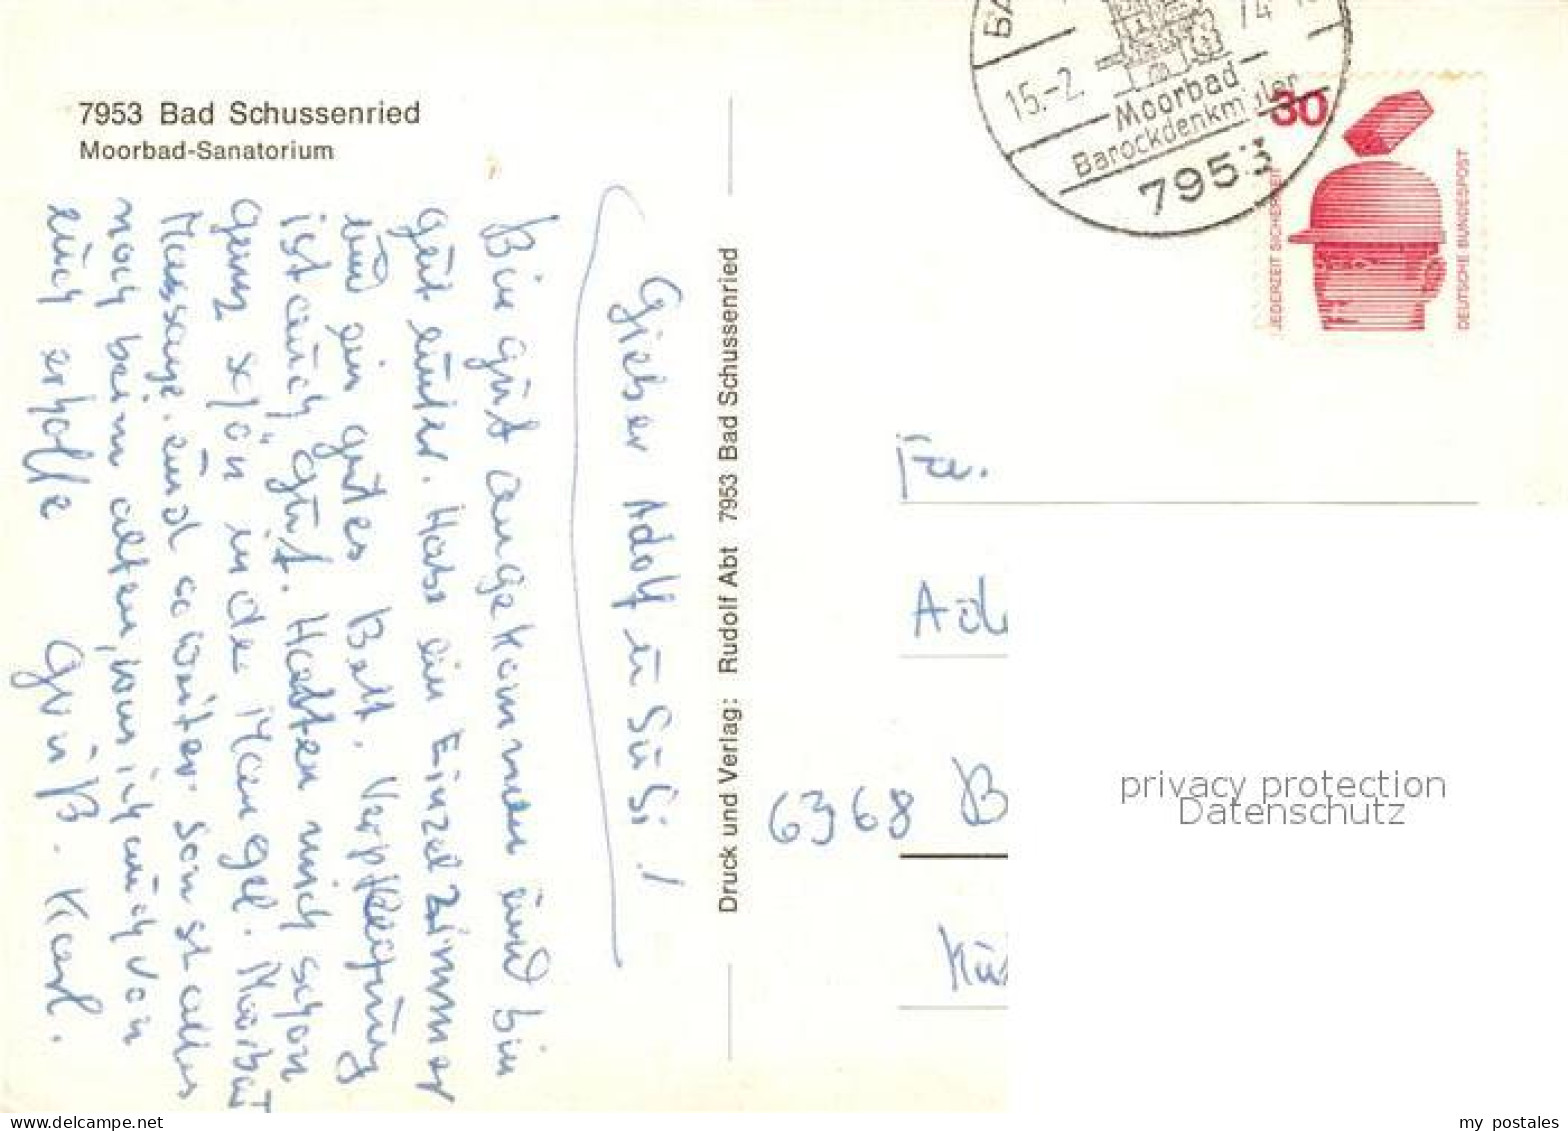 7953 Bad Schussenried
Moorbad-Sanatorium
Lieber Adolf u Susi!
Bin gut angekommen und bin
gut unter. Habe ein Einzelzimmer
und ein gutes Bett. Verpflegung
ist auch gut. Halten mich schon
ganz schön in de Mangel. Moorbad
Massage und so weiter. Sonst alles
noch beim alten, wenn ich auch von
euch erholle
Gruß. Karl.
Druck und Verlag: Rudolf Abt 7953 Bad Schussenried
15.-2.
74
Moorbad
Barockdenkmäler
7953
30
JEDERZEIT SICHERHEIT
DEUTSCHE BUNDESPOST
Fa.
6368 B
privacy protection
Datenschutz
my postales
www.delcampe.net